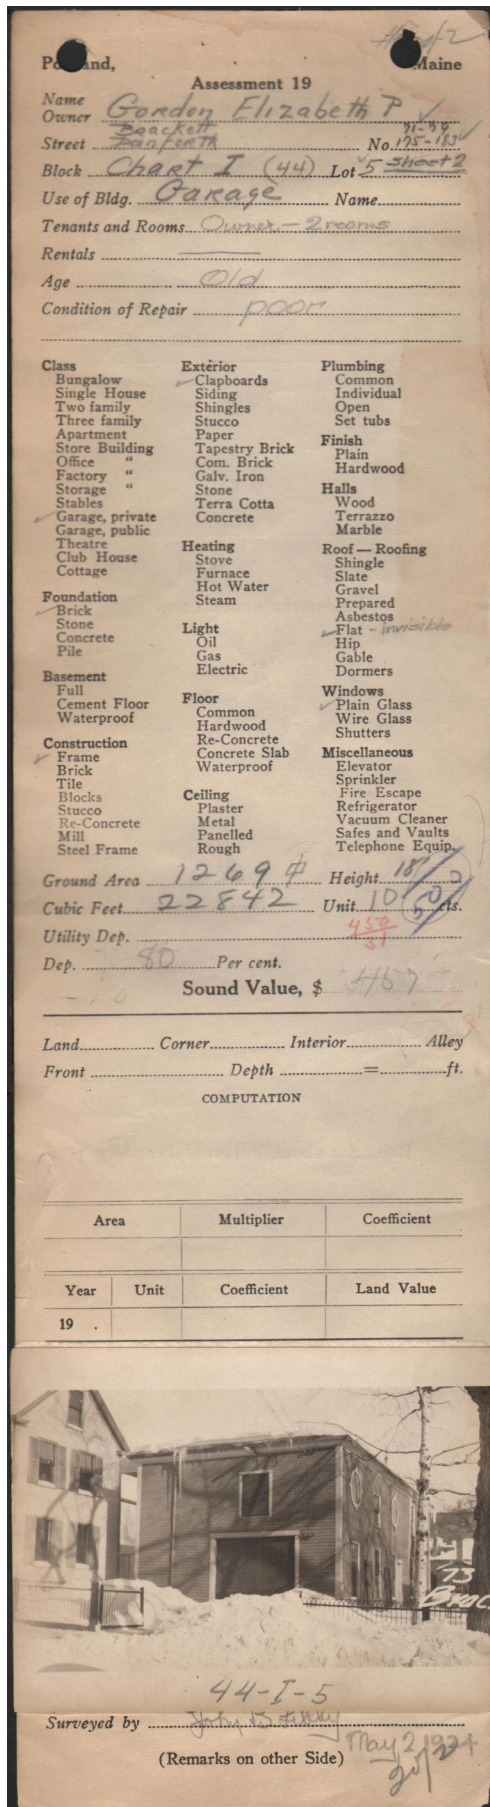 #2 of 2
Portland, Maine
Assessment 19
Name
Owner Gordon Elizabeth P
Brackett 71-79
Street Danforth No. 175-183
Block Chart I (44) Lot 5 Sheet 2
Use of Bldg. Garage Name
Tenants and Rooms Owner - 2 rooms
Rentals —
Age Old
Condition of Repair poor
Class
Bungalow
Single House
Two family
Three family
Apartment
Store Building
Office "
Factory "
Storage "
Stables
✓ Garage, private
Garage, public
Theatre
Club House
Cottage
Foundation
✓ Brick
Stone
Concrete
Pile
Basement
Full
Cement Floor
Waterproof
Construction
✓ Frame
Brick
Tile
Blocks
Stucco
Re-Concrete
Mill
Steel Frame
Exterior
✓ Clapboards
Siding
Shingles
Stucco
Paper
Tapestry Brick
Com. Brick
Galv. Iron
Stone
Terra Cotta
Concrete
Heating
Stove
Furnace
Hot Water
Steam
Light
Oil
Gas
Electric
Floor
Common
Hardwood
Re-Concrete
Concrete Slab
Waterproof
Ceiling
Plaster
Metal
Panelled
Rough
Plumbing
Common
Individual
Open
Set tubs
Finish
Plain
Hardwood
Halls
Wood
Terrazzo
Marble
Roof — Roofing
Shingle
Slate
Gravel
Prepared
Asbestos
✓ Flat - invisible
Hip
Gable
Dormers
Windows
✓ Plain Glass
Wire Glass
Shutters
Miscellaneous
Elevator
Sprinkler
Fire Escape
Refrigerator
Vacuum Cleaner
Safes and Vaults
Telephone Equip.
Ground Area 1269 Height 18'
Cubic Feet 22842 Unit 10 cts.
Utility Dep. 450
Dep. 80 Per cent.
Sound Value, $ 457
Land Corner Interior Alley
Front Depth = ft.
COMPUTATION
Area Multiplier Coefficient
Year Unit Coefficient Land Value
19 .
73
Brac
44-I-5
Surveyed by John
May 2 1924
(Remarks on other Side)